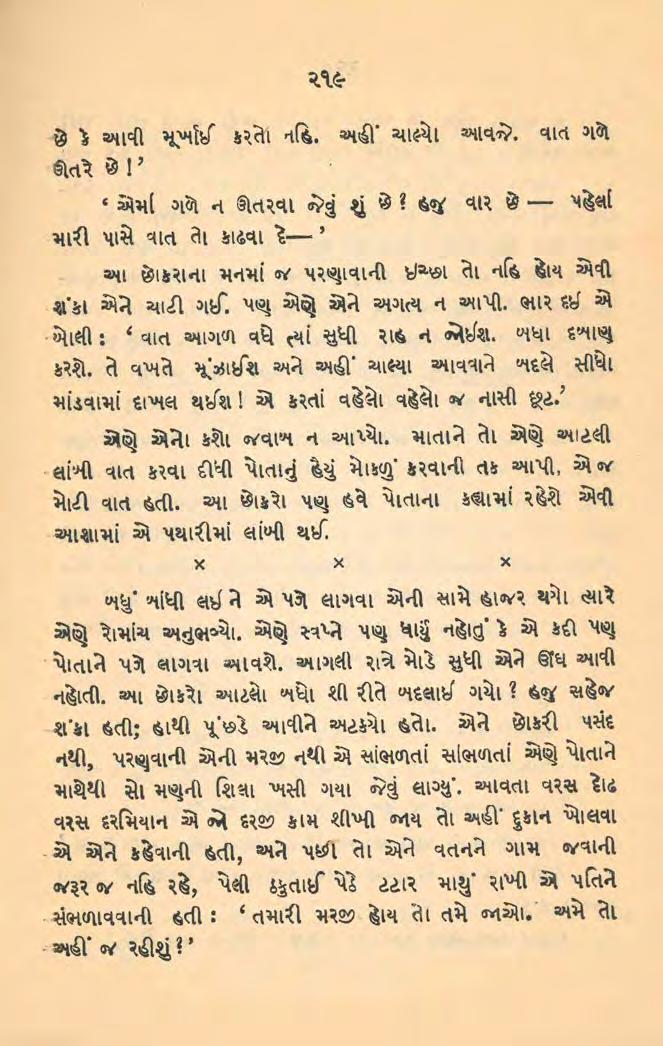 ૨૧૯
છે કે આવી મૂર્ખાઈ કરતો નહિ. અહીં ચાલ્યો આવજે. વાત ગળે
ઊતરે છે !’
‘ એમાં ગળે ન ઊતરવા જેવું શું છે ? હજુ વાર છે — પહેલાં
મારી પાસે વાત તો કાઢવા દે— ’
આ છોકરાના મનમાં જ પરણાવાની ઈચ્છા તો નહિ હોય એવી
શંકા એને ચાટી ગઈ. પણ એણે એને અગત્ય ન આપી. ભાર દઈ એ
બોલી : ‘ વાત આગળ વધે ત્યાં સુધી રાહ ન જોઈશ. બધા દબાણ
કરશે. તે વખતે મૂંઝાઈશ અને અહીં ચાલ્યા આવવાને બદલે સીધો
માંડવામાં દાખલ થઈશ ! એ કરતાં વહેલો વહેલો જ નાસી છૂટ.’
એણે એનો કશો જવાબ ન આપ્યો. માતાને તો એણે આટલી
લાંબી વાત કરવા દીધી પોતાનું હૈયું મોકળું કરવાની તક આપી, એ જ
મોટી વાત હતી. આ છોકરો પણ હવે પોતાના કહ્યામાં રહેશે એવી
આશામાં એ પથારીમાં લાંબી થઈ.
× × ×
બધું બાંધી લઈ ને એ પગે લાગવા એની સામે હાજર થયો ત્યારે
એણે રોમાંચ અનુભવ્યો. એણે સ્વપ્ને પણ ધાર્યું નહોતું કે એ કદી પણ
પોતાને પગે લાગવા આવશે. આગલી રાત્રે મોડે સુધી એને ઊંઘ આવી
નહોતી. આ છોકરો આટલો બધો શી રીતે બદલાઈ ગયો ? હજુ સહેજ
શંકા હતી; હાથી પૂંછડે આવીને અટક્યો હતો. એને છોકરી પસંદ
નથી, પરણવાની એની મરજી નથી એ સાંભળતાં સાંભળતાં એણે પોતાને
માથેથી સો મણની શિલા ખસી ગયા જેવું લાગ્યું. આવતા વરસ દોઢ
વરસ દરમિયાન એ જો દરજી કામ શીખી જાય તો અહીં દુકાન ખોલવા
એ એને કહેવાની હતી, અને પછી તો એને વતનને ગામ જવાની
જરૂર જ નહિ રહે, પેલી ઠકુતાઈ પેઠે ટટાર માથું રાખી એ પતિને
સંભળાવવાની હતી : ‘ તમારી મરજી હોય તો તમે જાઓ. અમે તો
અહીં જ રહીશું ?’